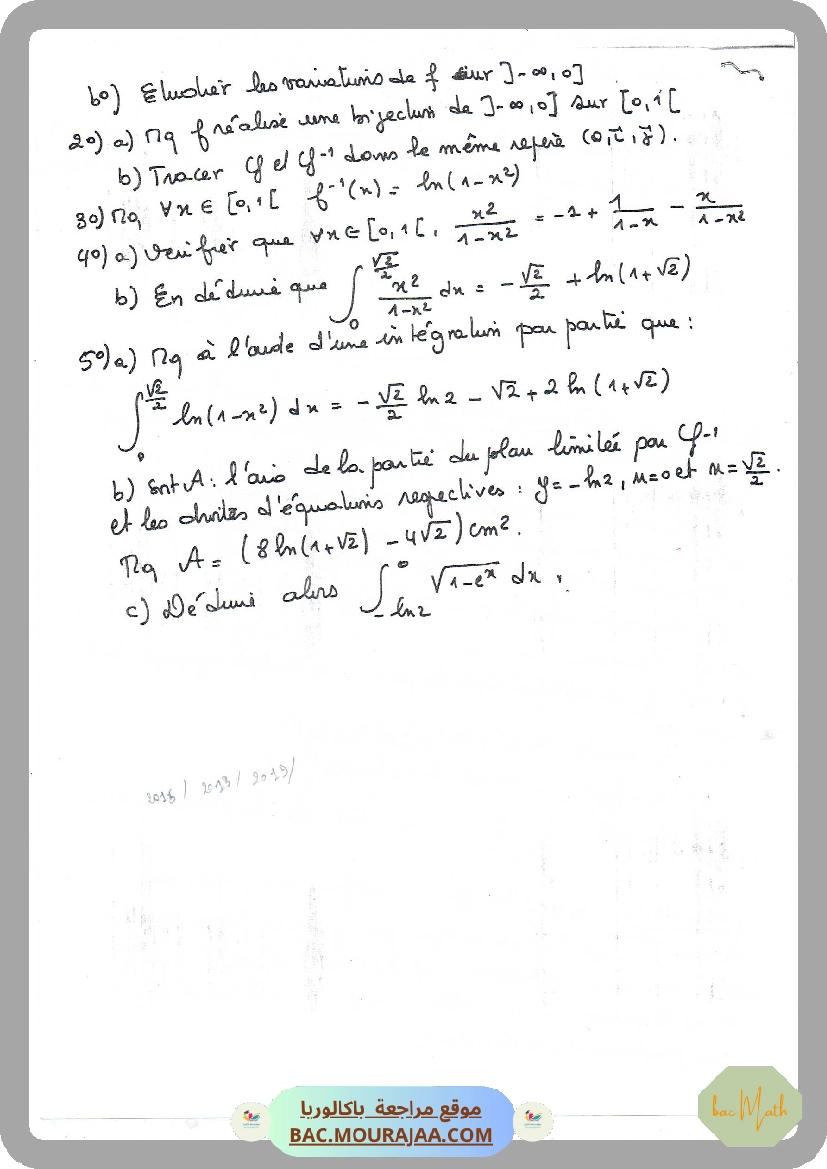 b°) Etudier les variations de f sur ]-∞,0]
2°) a) Mq f réalise une bijection de ]-∞,0] sur [0,1[
b) Tracer Cf et Cf⁻¹ dans le même repère (0,i⃗,j⃗).
3°) Mq ∀x∈[0,1[ f⁻¹(x) = ln(1-x²)
4°) a) Vérifier que ∀x∈[0,1[, x²/(1-x²) = -1 + 1/(1-x) - x/(1-x²)
b) En déduire que ∫₀^(√2/2) x²/(1-x²) dx = -√2/2 + ln(1+√2)
5°) a) Mq à l'aide d'une intégration par partie que :
∫₀^(√2/2) ln(1-x²) dx = -√2/2 ln2 - √2 + 2 ln(1+√2)
b) Soit A : l'aire de la partie du plan limitée par Cf⁻¹
et les droites d'équations respectives : y = -ln2, x=0 et x = √2/2.
Mq A = (8ln(1+√2) - 4√2) cm².
c) Déduire alors ∫_(-ln2)^0 √(1-eˣ) dx.
/ 2013 / 2019/
موقع مراجعة باكالوريا
BAC.MOURAJAA.COM
bac Math